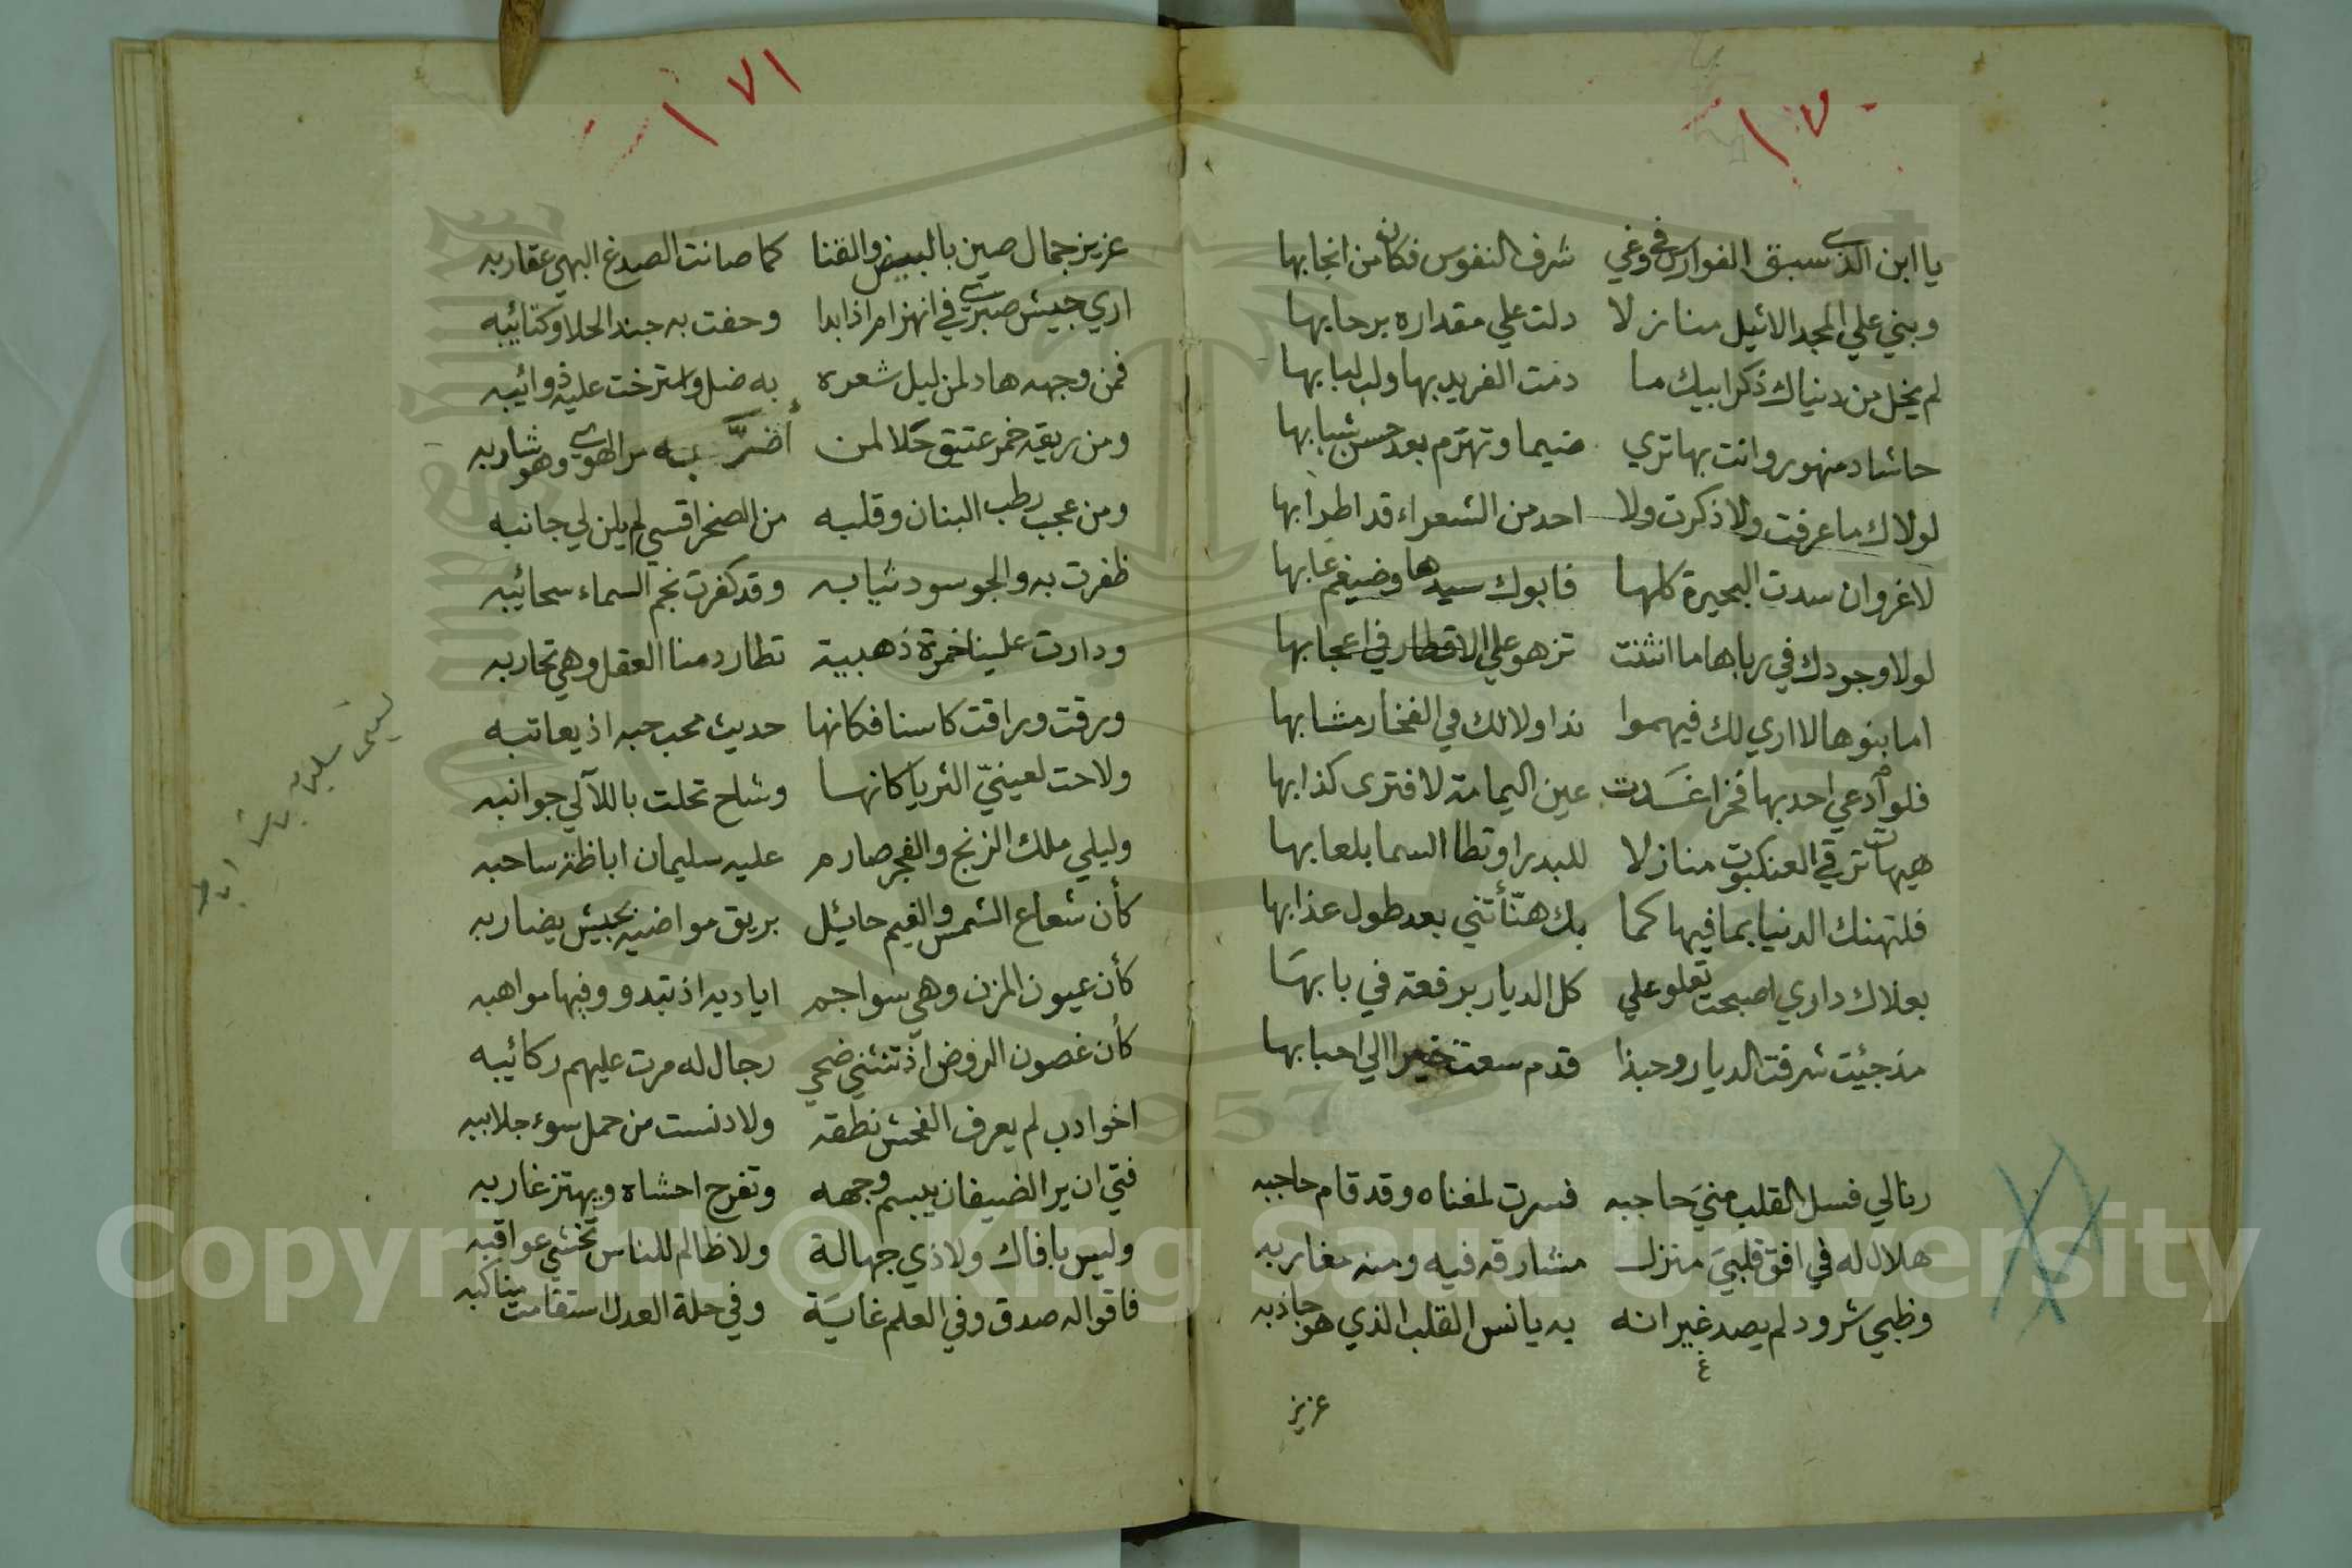 ١٧٠
يا ابن الذي سبق الفوارس في وغي شرف النفوس فكان من انجابها
وبني علي المجد الاثيل منازلا دلت علي مقداره برحابها
لم يخل من دنياك ذكر ابيك ما دمت الفريد بها ولب لبابها
حاشا دمنهور وانت بها تري ضيما وتهترم بعد حسن شبابها
لولاك ما عرفت ولا ذكرت ولا احد من الشعراء قد اطرا بها
لا غروان سدت البحيرة كلها فابوك سيدها وضيغم غابها
لولا وجودك في رباها ما انثنت تزهو علي الاقطار في اعجابها
اما بنوها لا اري لك فيهموا ندا ولا لك في الفخار مشابها
فلو ادعي احد بها فخرا غدت عين اليمامة لا فترى كذابها
هيهات ترقي العنكبوت منازلا للبدر او تطا السما بلعابها
فلتهنك الدنيا بما فيها كما بك هنّأتني بعد طول عذابها
بعلاك داري اصبحت تعلو علي كل الديار برفعة في بابها
مذ جئيت شرفت الديار وحبذا قدم سعت خيرا الي احبابها
رنا لي فسل القلب مني حاجبه فسرت لمغناه وقد قام حاجبه
هلال له في افق قلبي منزل مشارقه فيه ومنه مغاربه
وظبي شرود لم يصد غير انه به يانس القلب الذي هو جاذبه
عزيز
١٧١
عزيز جمال صين بالبيض والقنا كما صانت الصدغ البهي عقاربه
اري جيش صبري في انهزام اذا بدا وحفت به جند الحلا وكتائبه
فمن وجهه هاد لمن ليل شعره به ضل واسترخت عليه ذوائيبه
ومن ريقه خمر عتيق حلا لمن أضرَّ به مر الهوي وهو شاربه
ومن عجب رطب البنان وقلبه من الصخر اقسي لم يلن لي جانبه
ظفرت به والجو سود ثيابه وقد كفرت نجم السماء سحائيبه
ودارت علينا خمرة ذهبية تطارد منا العقل وهي تحاربه
ورقت وراقت كاسنا فكانها حديث محب حبه اذ يعاتبه
ولاحت لعينيّ الثريا كانها وشاح تحلت باللآلي جوانبه
وليلي ملك الزنج والفجر صارم عليه سليمان اباظة ساحبه
كأن شعاع الشمس والغيم حايئل بريق مواضيه بجيش يضاربه
كأن عيون المزن وهي سواجم اياديه اذ تبدو وفيها مواهبه
كأن غصون الروض اذ تثني ضحي رجال له مرت عليهم ركائيبه
اخو ادب لم يعرف الفحش نطقه ولا دنست من حمل سوء جلاببه
فتي ان ير الضيفان يبسم وجهه وتفرح احشاه ويهتز غاربه
وليس بافاك ولا ذي جهالة ولا ظالم للناس تخشي عواقبه
فاقواله صدق وفي العلم غاية وفي حلة العدل استقامت مناكبه
Copyright © King Saud University
1957